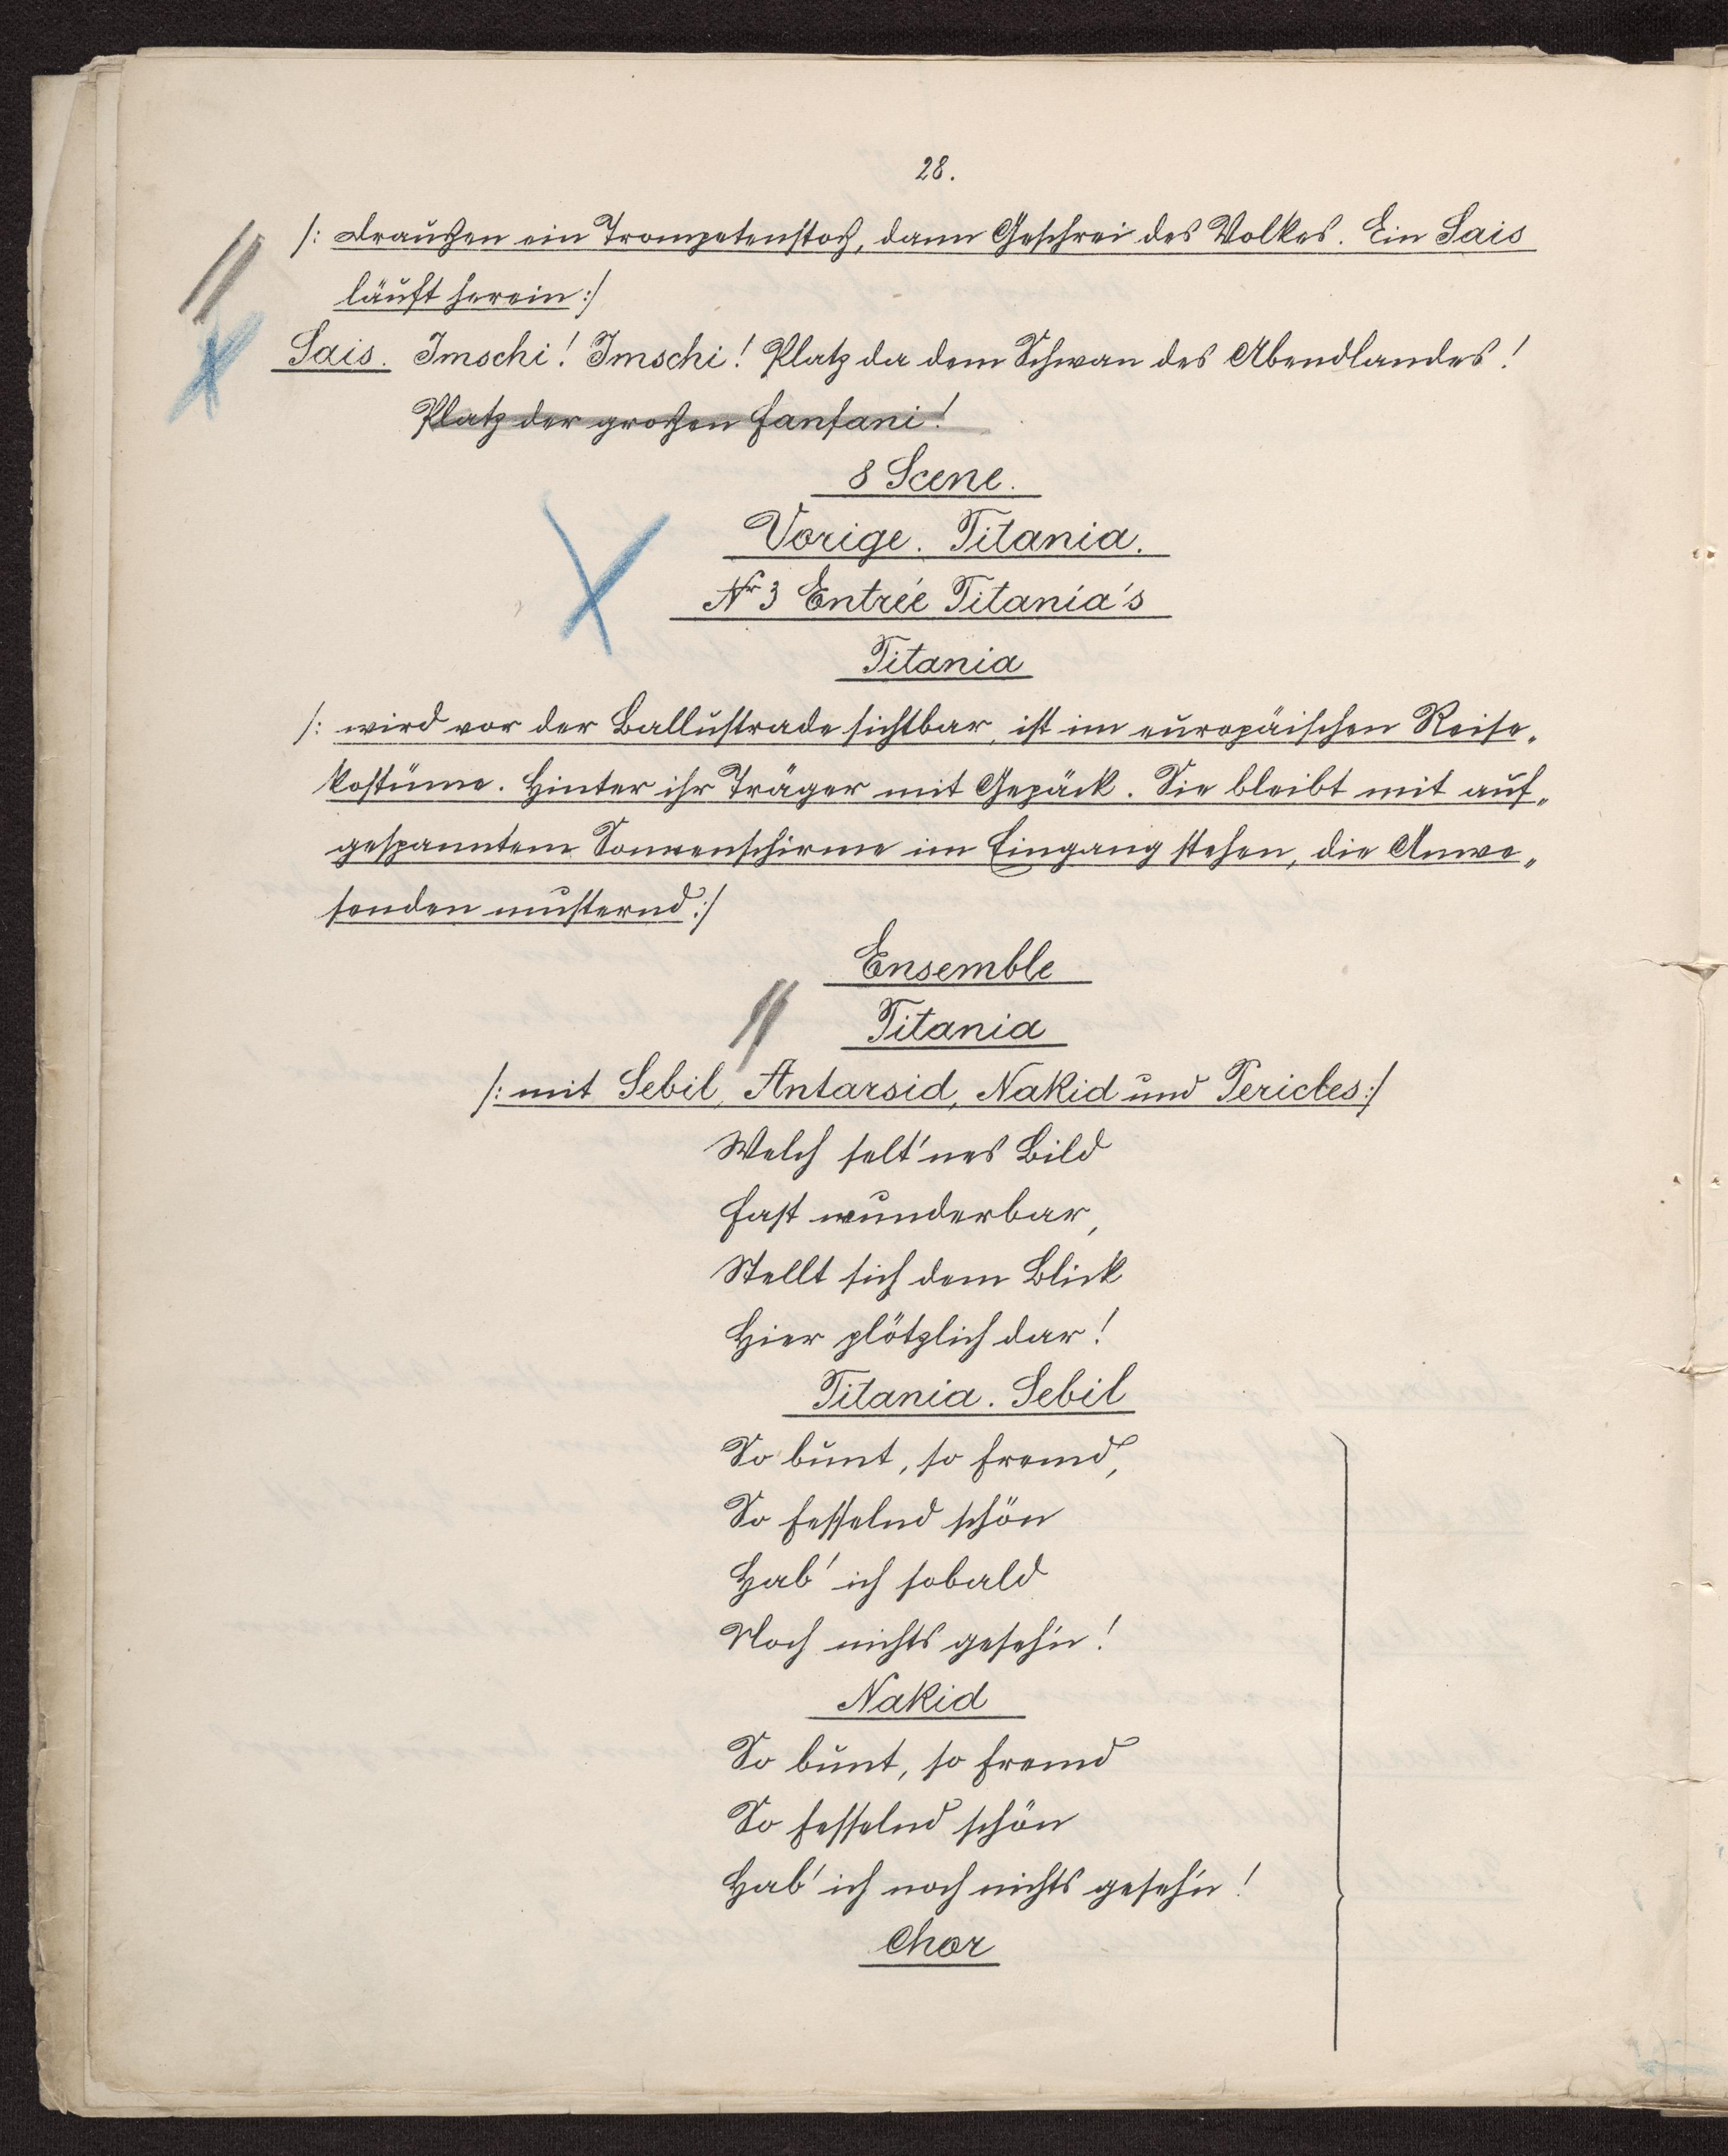 28.
/: draußen ein Trompetenstoß, dann Geschrei des Volkes. Ein Sais
läuft herein :/
Sais. Imschi! Imschi! Platz da dem Schwan des Abendlandes!
Platz der großen Fanfani!
8 Scene.
Vorige. Titania.
Nr 3 Entrée Titania's
Titania
/: wird vor der Ballustrade sichtbar, ist im europäischen Reise„
kostüme. Hinter ihr Träger mit Gepäck. Sie bleibt mit auf„
gespanntem Sonnenschirme im Eingang stehen, die Anwe„
senden musternd :/
Ensemble
Titania
/: mit Sebil, Antarsid, Nakid und Pericles :/
Welch selt'nes Bild
Fast wunderbar,
Stellt sich dem Blick
Hier plötzlich dar!
Titania. Sebil
So bunt, so fremd,
So fesselnd schön
Hab' ich sobald
Noch nichts geseh'n!
Nakid
So bunt, so fremd
So fesselnd schön
Hab' ich noch nichts geseh'n!
Chor